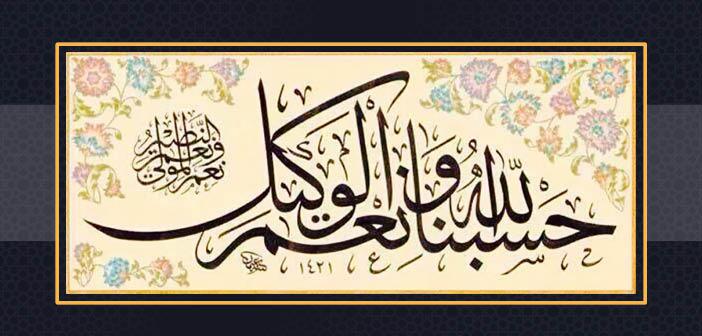 حسبنا الله ونعم الوكيل
نعم المولى ونعم النصير
١٤٢١